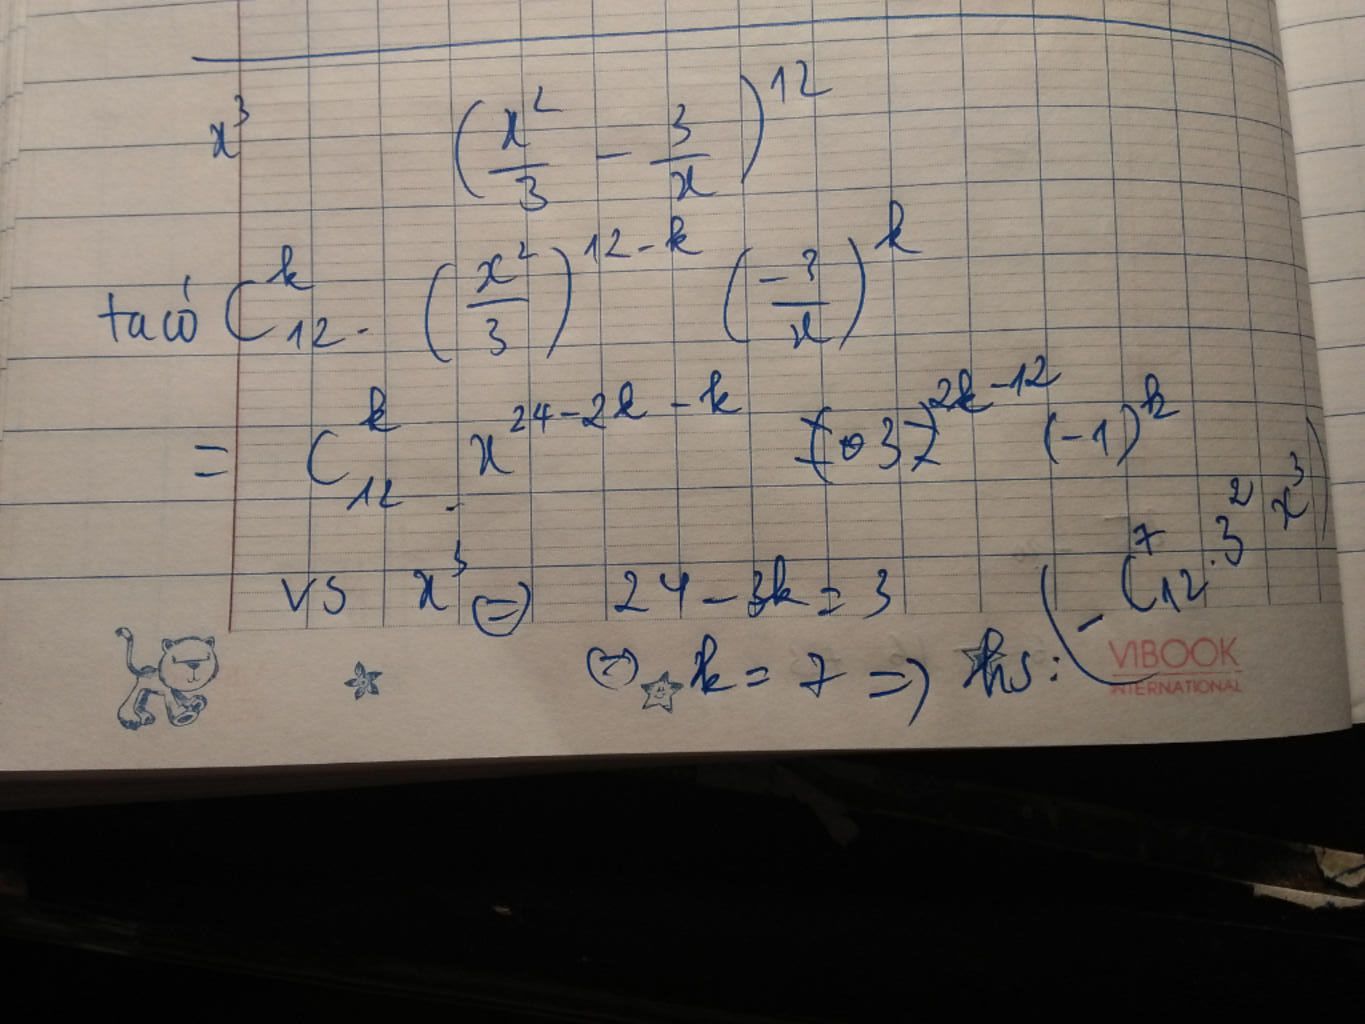 x³ (x²/3 - 3/x)¹²
ta có C₁₂ᵏ . (x²/3)¹²⁻ᵏ (-3/x)ᵏ
= C₁₂ᵏ . x²⁴⁻²ᵏ⁻ᵏ 3²ᵏ⁻¹² (-1)ᵏ
vs x³ ⇔ 24 - 3k = 3
⇔ k = 7 => hs: (- C₁₂⁷ . 3² x³)
VIBOOK
INTERNATIONAL